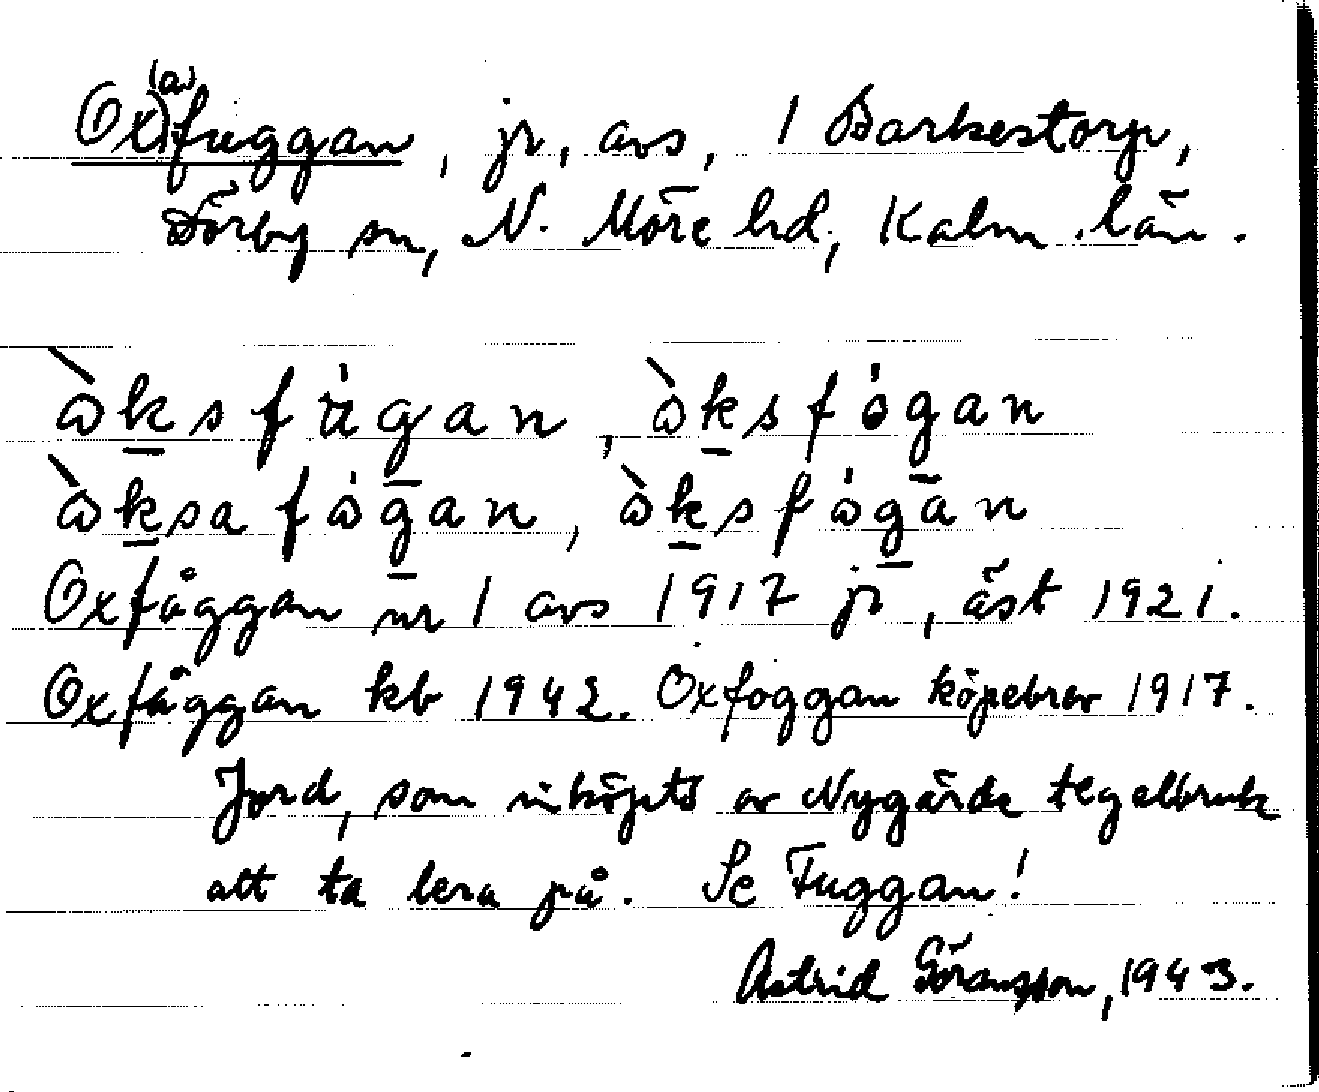 Ox(a)fuggan, jr, avs, 1 Barkestorp,
Dörby sn, N. Möre hd, Kalm. län.
ὼksfu̇gan, ὼksfȯgan
ὼksafω̇gan, ὼksfω̇gan
Oxfåggan nr 1 avs 1917 jr, äst 1921.
Oxfåggan kb 1942. Oxfoggan köpebrev 1917.
Jord, som inköpts av Nygärde tegelbruk
att ta lera på. Se Fuggan!
Astrid Göransson, 1943.